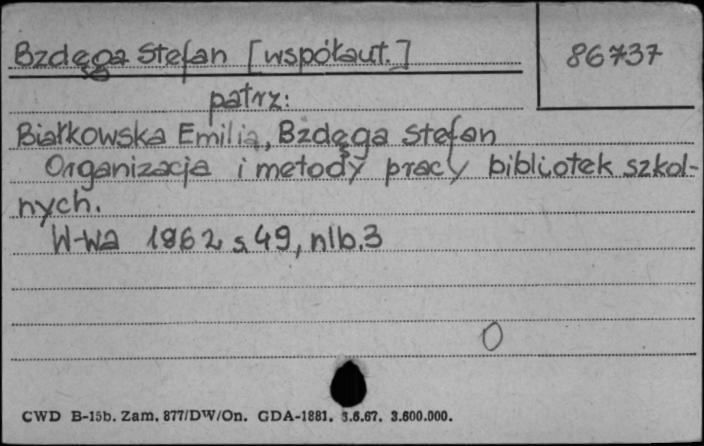 Bzdęga Stefan [współaut.]
86737
patrz:
Białkowska Emilia, Bzdęga Stefan
Organizacja i metody pracy bibliotek szkol-
nych.
W-wa 1962 s. 49, nlb. 3
CWD B-15b. Zam. 877/DW/On. GDA-1881. 3.6.67. 3.600.000.